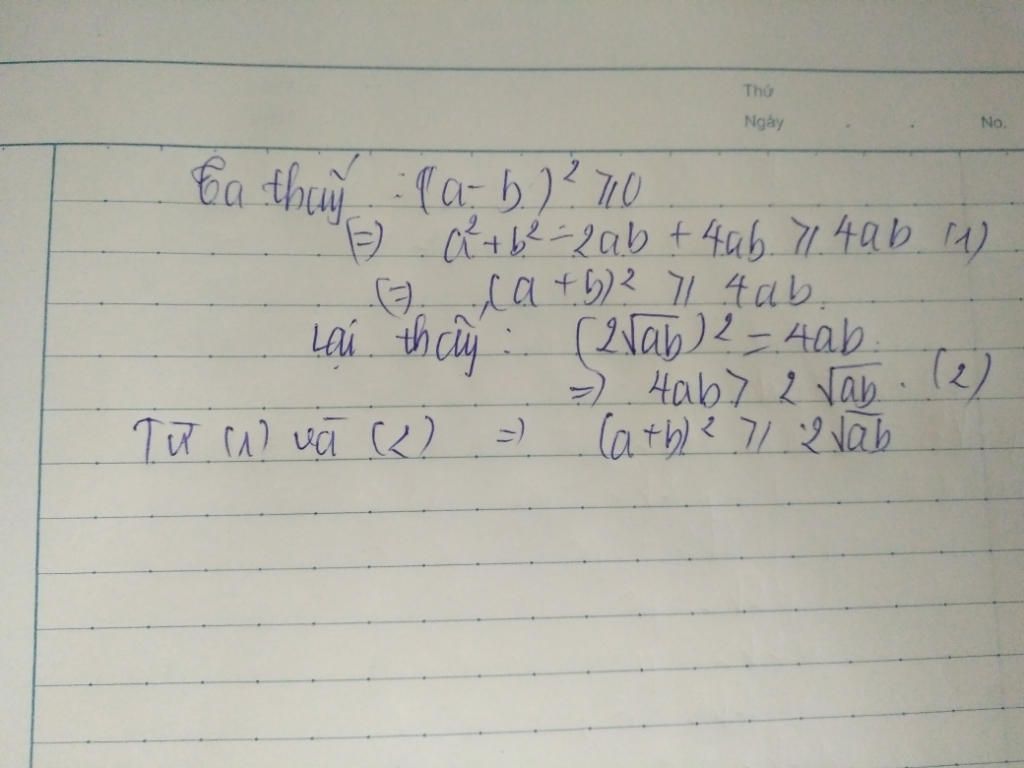 Thứ
Ngày . . No.
Ta thấy : (a - b)² ≥ 0
(=) a² + b² - 2ab + 4ab ≥ 4ab (1)
(=) (a + b)² ≥ 4ab
Lại thấy : (2√ab)² = 4ab
=) 4ab > 2√ab . (2)
Từ (1) và (2) =) (a + b)² ≥ 2√ab